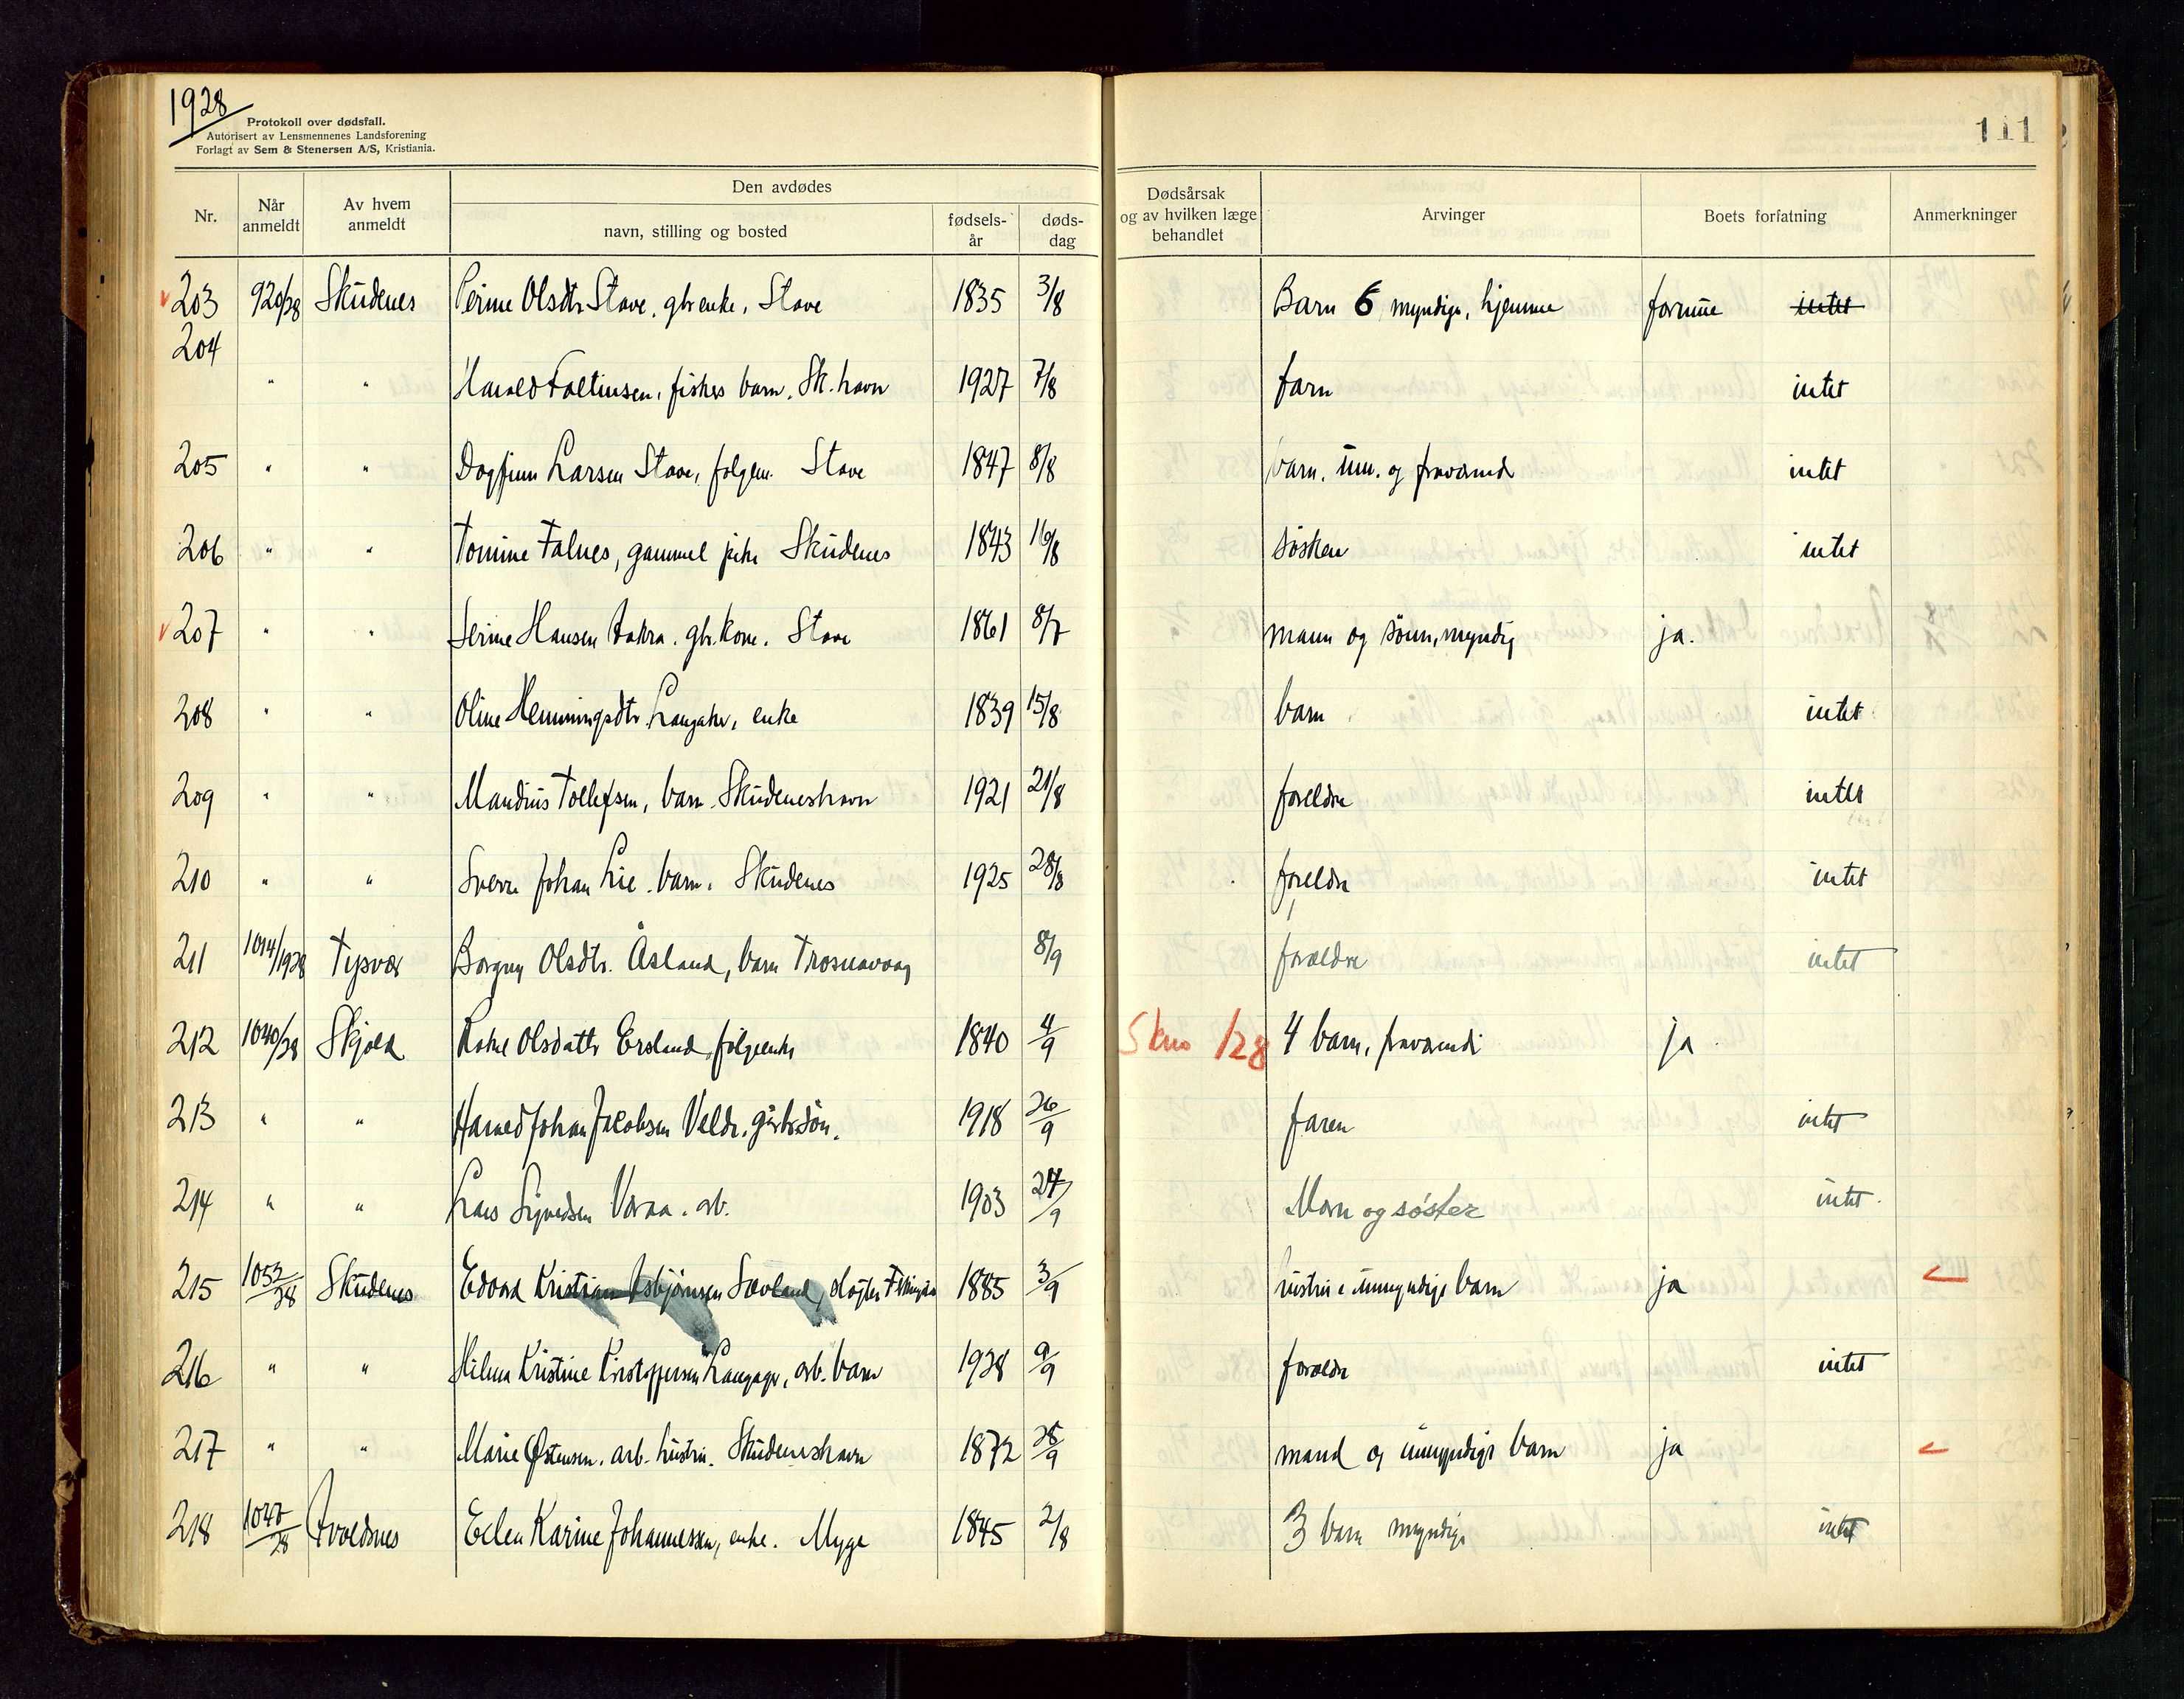 1928
Protokoll over dødsfall.
Autorisert av Lensmennenes Landsforening
Forlagt av Sem & Stenersen A/S, Kristiania.
111
Nr. Når anmeldt Av hvem anmeldt Den avdødes navn, stilling og bosted fødselsår dødsdag Dødsårsak og av hvilken læge behandlet Arvinger Boets forfatning Anmerkninger
203 920/28 Skudenes Perine Olsdtr Stave, gbr enke, Stave 1835 3/8 Barn 6 myndige, hjemme formue intet
204 " " Harald Faltinsen, fiskers barn, Sk.havn 1927 7/8 farn intet
205 " " Dagfinn Larsen Stave, følgem. Stave 1847 8/8 barn, um. og fraværend intet
206 " " Tomine Falnes, gammel pike Skudenes 1843 16/8 søsken intet
207 " " Serine Hansen Aakra, gbr.kone, Stave 1861 8/7 mann og sønn, myndig ja.
208 " " Oline Henningsdtr. Langaker, enke 1839 15/8 barn intet
209 " " Mandius Tollefsen, barn Skudeneshavn 1921 21/8 foreldre intet
210 " " Sverre Johan Lie, barn, Skudenes 1925 28/8 foreldre intet
211 1014/1928 Tysvær Borgny Olsdtr. Åsland, barn Trosnavaag 8/9 forældre intet
212 1040/28 Skjold Olsdattr Ersland, følgeenke 1840 4/9 /28 4 barn, fraværende ja
213 " " Harald Johan Jacobsen Velde, gårdbr.søn. 1918 26/9 faren intet
214 " " Lars Sigvedsen Varaa, arb. 1903 24/9 Morn og søster intet
215 1052/28 Skudenes Edvard Kristian Asbjørnsen Sævland, slagter 1885 3/9 hustru & umyndige barn ja
216 " " Hilma Kristine Kristoffersen Langager, arb. barn 1928 9/9 forældre intet
217 " " Marie Østensen, arb. hustru. Skudeneshavn 1872 28/9 mand og umyndige barn ja
218 1047/28 Avaldsnes Ellen Karine Johannessen, enke. Myge 1845 2/8 3 barn myndige intet